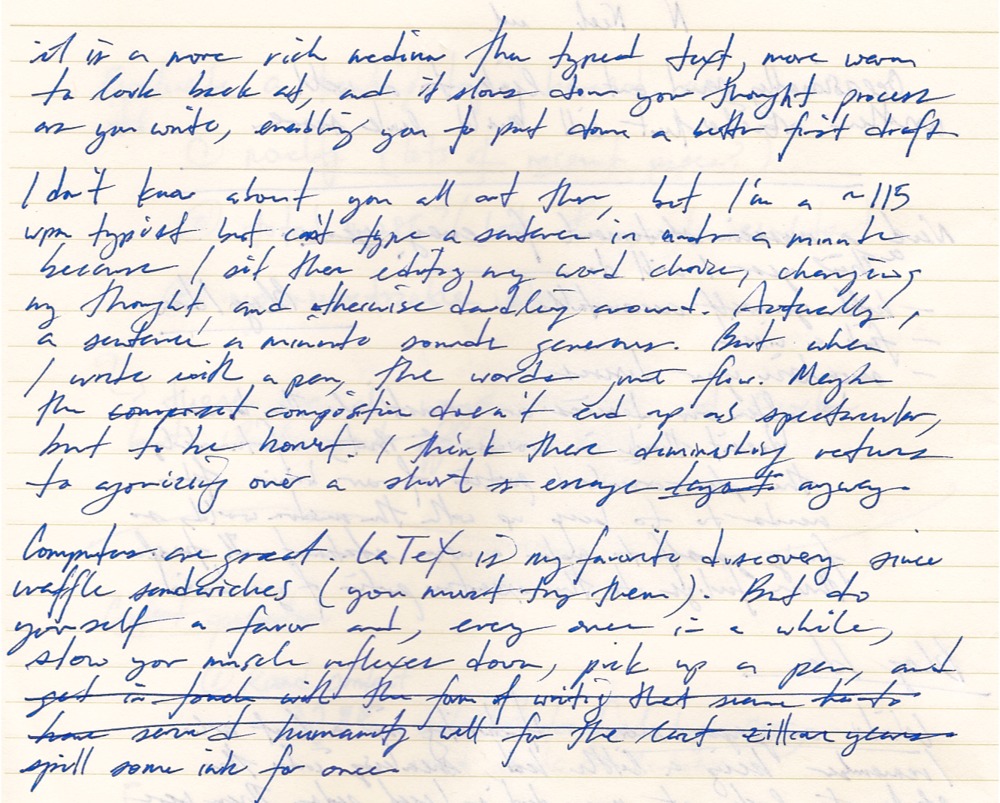 it is a more rich medium than typed text, more warm
to look back at, and it slows down your thought process
as you write, enabling you to put down a better first draft
I don't know about you all out there, but I'm a ~115
wpm typist but can't type a sentence in under a minute
because I sit there editing my word choice, changing
my thought, and otherwise dawdling around. Actually,
a sentence a minute sounds generous. But when
I write with a pen, the words just flow. Maybe
the composit composition doesn't end up as spectacular,
but to be honest. I think there diminishing returns
to agonizing over a short message anyway.
Computers are great. LaTeX is my favorite discovery since
waffle sandwiches (you must try them). But do
yourself a favor and, every once in a while,
slow your muscle reflexes down, pick up a pen, and
get in touch with the form of writing that seems to
have served humanity well for the last zillion years
spill some ink for once.